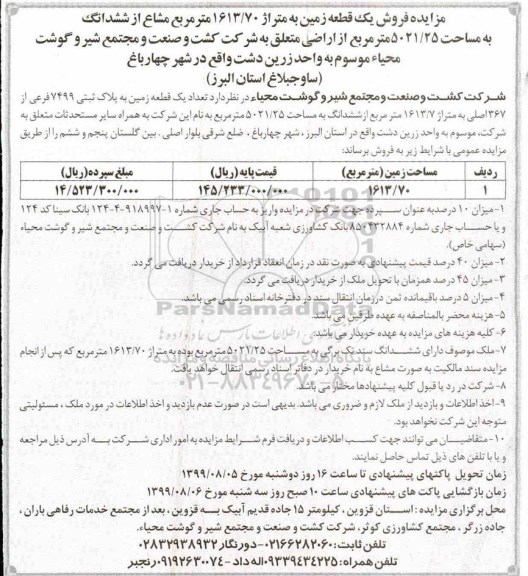 مزایده فروش یک قطعه زمین به متراژ ۱۶۱۳/۷۰ مترمربع مشاع از ششدانگ
به مساحت ۵۰۲۱/۲۵ مترمربع از اراضی متعلق به شرکت کشت و صنعت و مجتمع شیر و گوشت
محیاء موسوم به واحد زرین دشت واقع در شهر چهارباغ
(ساوجبلاغ استان البرز)
شرکت کشت و صنعت و مجتمع شیر و گوشت محیاء در نظر دارد تعداد یک قطعه زمین به پلاک ثبتی ۷۴۹۹ فرعی از
۳۶۷ اصلی به متراژ ۱۶۱۳/۷ متر مربع از ششدانگ به مساحت ۵۰۲۱/۲۵ مترمربع به نام این شرکت به همراه سایر مستحدثات متعلق به
شرکت، موسوم به واحد زرین دشت واقع در استان البرز، شهر چهارباغ، ضلع شرقی بلوار اصلی، بین گلستان پنجم و ششم را از طریق
مزایده عمومی با شرایط زیر به فروش برساند:
ردیف مساحت زمین (مترمربع) قیمت پایه (ریال) مبلغ سپرده (ریال)
۱ ۱۶۱۳/۷۰ ۱۴۵/۲۳۳/۰۰۰/۰۰۰ ۱۴/۵۲۳/۳۰۰/۰۰۰
۱- میزان ۱۰ درصد به عنوان سپرده جهت شرکت در مزایده واریز به حساب جاری شماره ۱-۹۱۸۹۹۷-۴-۱۲۴ بانک سینا کد ۱۲۴
و یا حساب جاری شماره ۸۵۰۴۳۲۸۸۴ بانک کشاورزی شعبه آبیک به نام شرکت کشت و صنعت و مجتمع شیر و گوشت محیاء
(سهامی خاص).
۲- میزان ۴۰ درصد قیمت پیشنهادی به صورت نقد در زمان انعقاد قرارداد از خریدار دریافت می گردد.
۳- میزان ۴۵ درصد همزمان با تحویل ملک از خریدار دریافت می گردد.
۴- میزان ۵ درصد باقیمانده ثمن در زمان انتقال سند در دفترخانه اسناد رسمی می باشد.
۵- هزینه محضر بالمناصفه به عهده طرفین می باشد.
۶- کلیه هزینه های مزایده به عهده خریدار می باشد.
۷- ملک موصوف دارای ششدانگ سند تک برگی به مساحت ۵۰۲۱/۲۵ مترمربع بوده به متراژ ۱۶۱۳/۷۰ مترمربع که پس از انجام
مزایده سند مالکیت به صورت مشاع به نام خریدار در دفاتر اسناد رسمی انتقال خواهد یافت.
۸- شرکت در رد یا قبول کلیه پیشنهادها مختار می باشد.
۹- اخذ اطلاعات و بازدید از ملک لازم و ضروری می باشد. بدیهی است در صورت عدم بازدید و اخذ اطلاعات در مورد ملک، مسئولیتی
متوجه این شرکت نخواهد بود.
۱۰- متقاضیان می توانند جهت کسب اطلاعات و دریافت فرم شرایط مزایده به امور اداری شرکت به آدرس ذیل مراجعه
و یا با تلفن های ذیل تماس حاصل نمایند.
زمان تحویل پاکتهای پیشنهادی تا ساعت ۱۶ روز دوشنبه مورخ ۱۳۹۹/۰۸/۰۵
زمان بازگشایی پاکت های پیشنهادی ساعت ۱۰ صبح روز سه شنبه مورخ ۱۳۹۹/۰۸/۰۶
محل برگزاری مزایده: استان قزوین، کیلومتر ۱۵ جاده قدیم آبیک به قزوین، بعد از مجتمع خدمات رفاهی باران،
جاده زرگر، مجتمع کشاورزی کوثر، شرکت کشت و صنعت و مجتمع شیر و گوشت محیاء.
تلفن ثابت: ۰۲۱۶۶۲۸۲۰۶۰ - دورنگار ۰۲۸۳۲۹۳۸۹۳۲
تلفن همراه: ۰۹۳۳۹۴۳۴۲۲۵ اله داد - ۰۹۱۹۲۶۳۰۰۷۴ رنجبر
ParsNamadData
پایگاه اطلاع رسانی مناقصه و مزایده